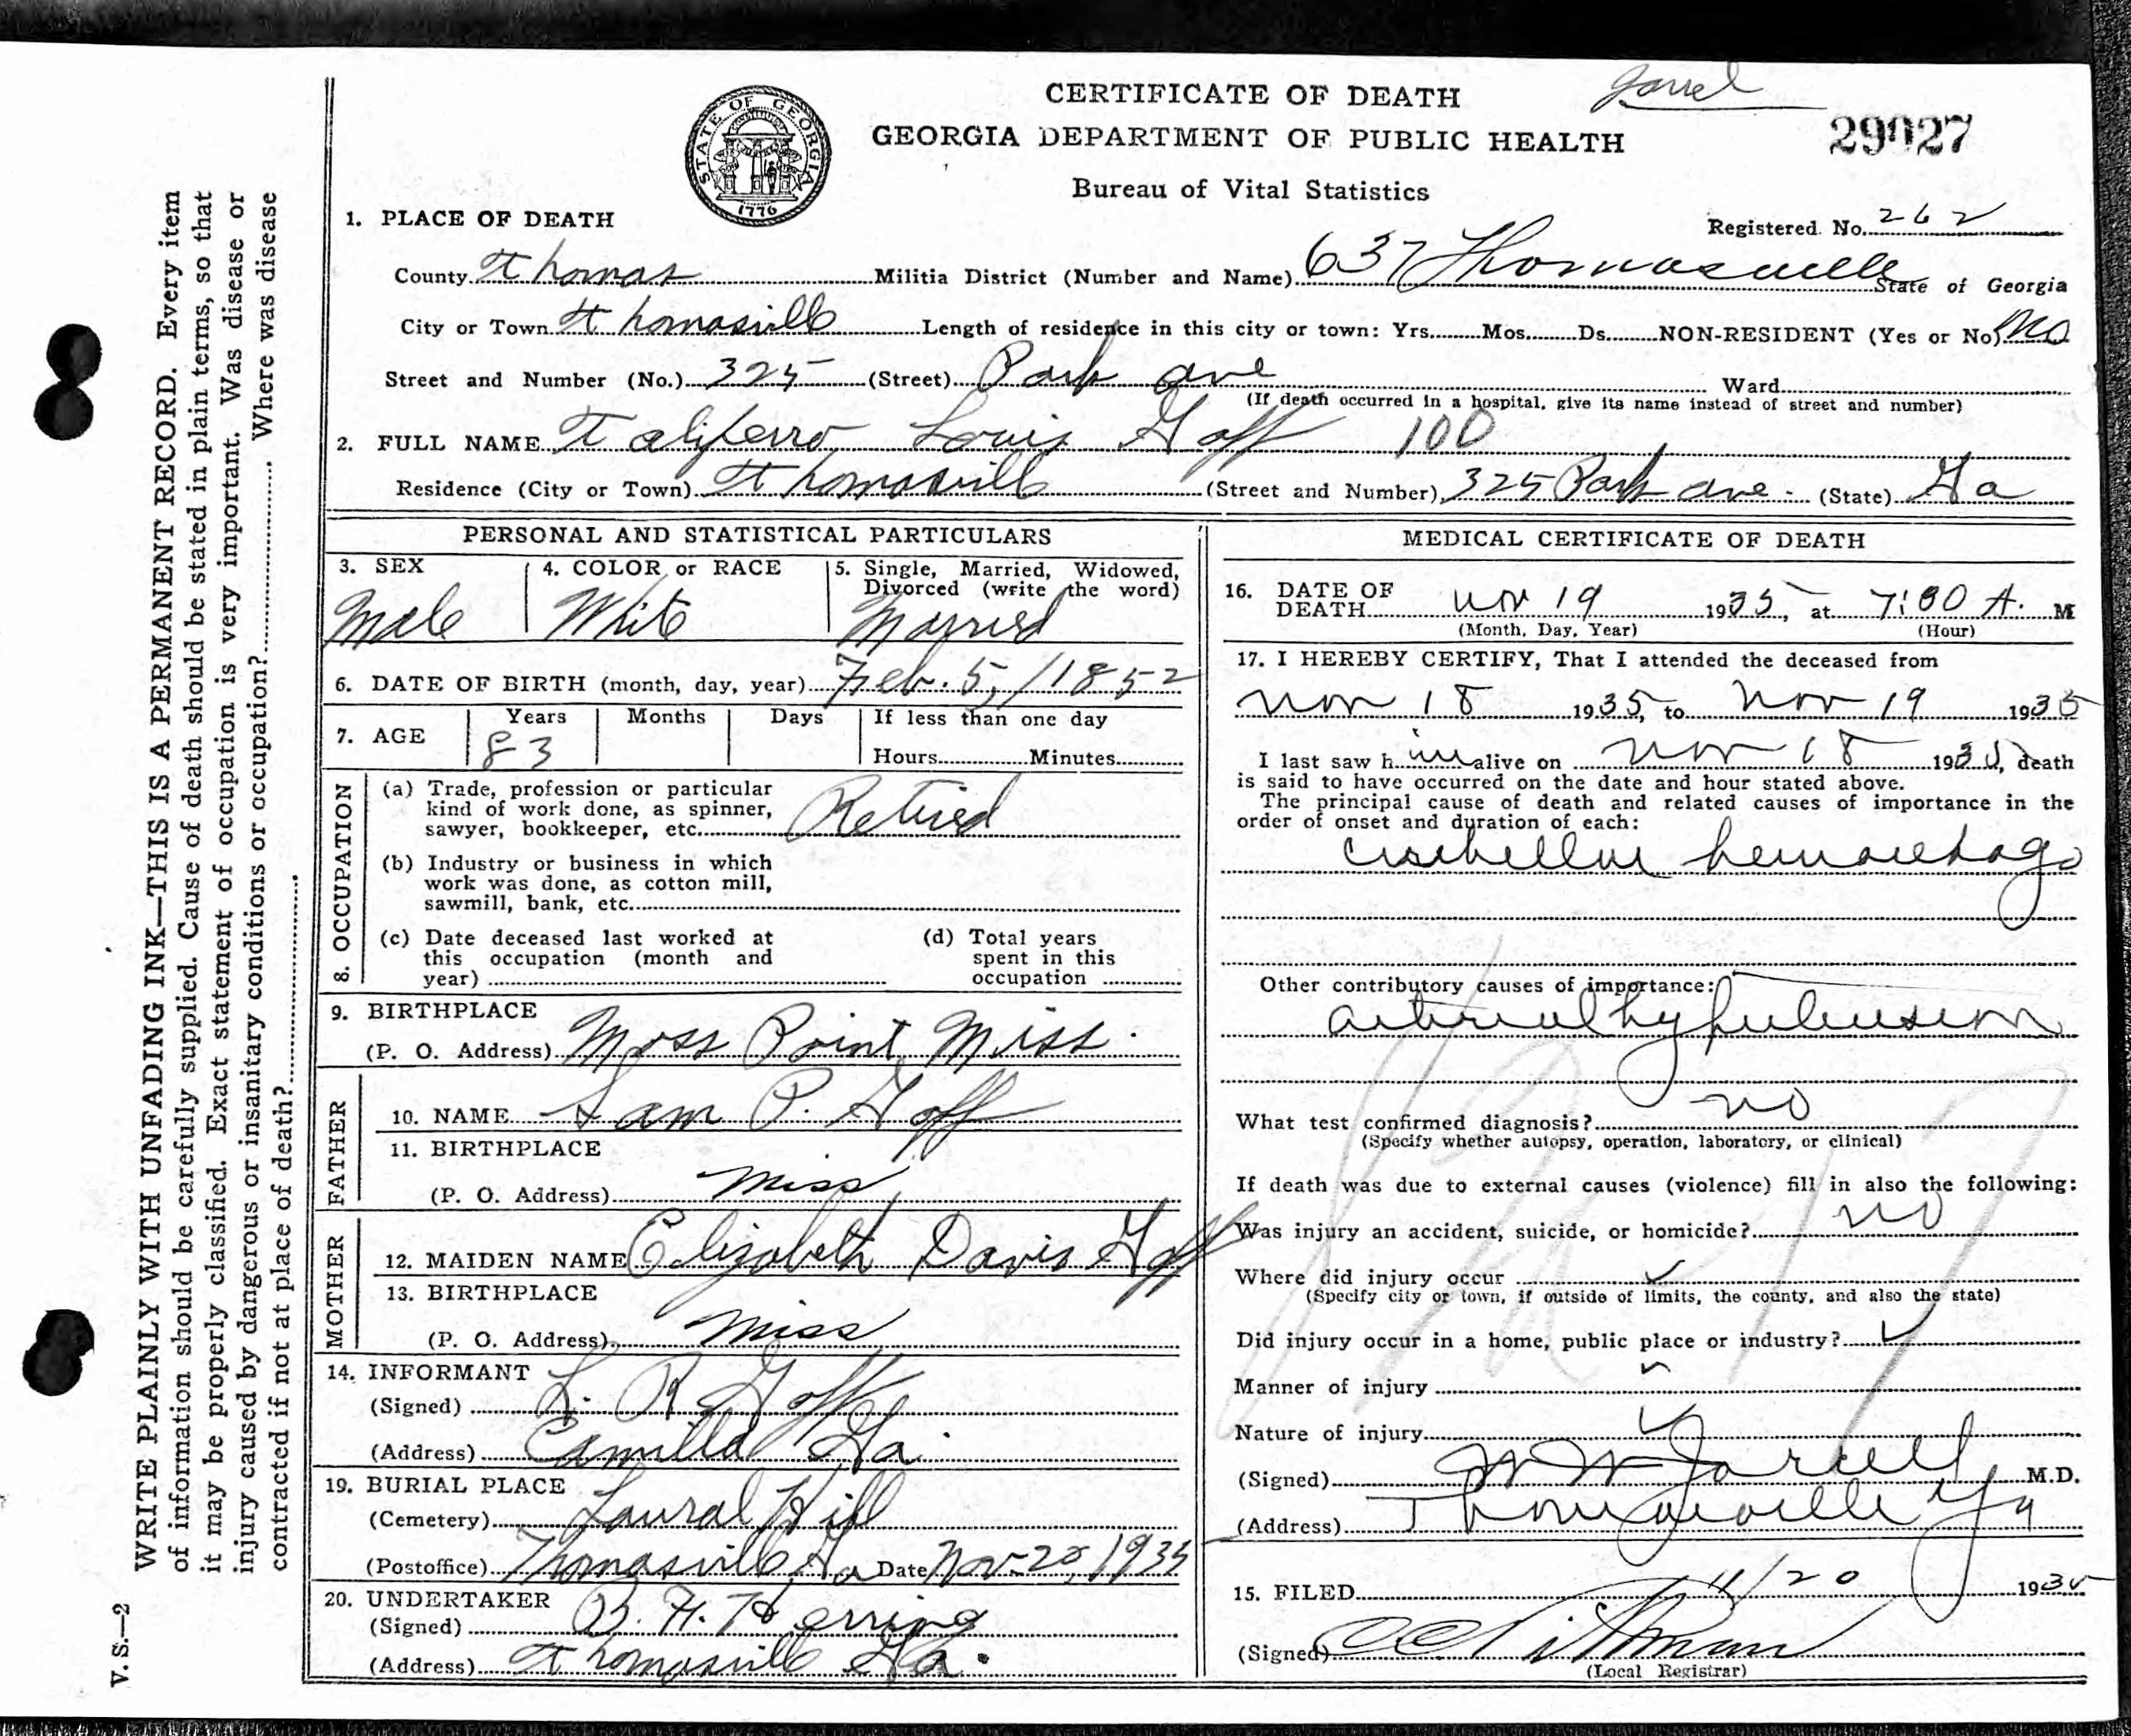 Jarrel
CERTIFICATE OF DEATH
GEORGIA DEPARTMENT OF PUBLIC HEALTH
Bureau of Vital Statistics
29027
STATE OF GEORGIA
1776
Registered No. 262
1. PLACE OF DEATH
County Thomas Militia District (Number and Name) 637 Thomasville State of Georgia
City or Town Thomasville Length of residence in this city or town: Yrs. Mos. Ds. NON-RESIDENT (Yes or No) No
Street and Number (No.) 325 (Street) Park ave Ward
(If death occurred in a hospital, give its name instead of street and number)
2. FULL NAME Taliferro Louis Goff 100
Residence (City or Town) Thomasville (Street and Number) 325 Park ave. (State) Ga
PERSONAL AND STATISTICAL PARTICULARS
3. SEX Male
4. COLOR or RACE White
5. Single, Married, Widowed,
Divorced (write the word)
Married
6. DATE OF BIRTH (month, day, year) Feb. 5, /1852
7. AGE Years Months Days If less than one day
83 Hours Minutes
8. OCCUPATION
(a) Trade, profession or particular
kind of work done, as spinner,
sawyer, bookkeeper, etc. Retired
(b) Industry or business in which
work was done, as cotton mill,
sawmill, bank, etc.
(c) Date deceased last worked at
this occupation (month and
year)
(d) Total years
spent in this
occupation
9. BIRTHPLACE
(P. O. Address) Moss Point, Miss.
FATHER
10. NAME Sam P. Goff
11. BIRTHPLACE
(P. O. Address) Miss
MOTHER
12. MAIDEN NAME Elizabeth Davis Goff
13. BIRTHPLACE
(P. O. Address) Miss
14. INFORMANT
(Signed) L. R Goff
(Address) Camilla Ga.
19. BURIAL PLACE
(Cemetery) Laural Hill
(Postoffice) Thomasville, Ga Date Nov-20, 1935
20. UNDERTAKER
(Signed) B. H. Herring
(Address) Thomasville Ga.
MEDICAL CERTIFICATE OF DEATH
16. DATE OF
DEATH Nov 19 1935, at 7:00 A. M
(Month, Day, Year) (Hour)
17. I HEREBY CERTIFY, That I attended the deceased from
Nov 18 1935, to Nov 19 1935
I last saw him alive on Nov 18 1935, death
is said to have occurred on the date and hour stated above.
The principal cause of death and related causes of importance in the
order of onset and duration of each:
hemorrhage
Other contributory causes of importance:
arterial hypertension
What test confirmed diagnosis? no
(Specify whether autopsy, operation, laboratory, or clinical)
If death was due to external causes (violence) fill in also the following:
Was injury an accident, suicide, or homicide? no
Where did injury occur ✓
(Specify city or town, if outside of limits, the county, and also the state)
Did injury occur in a home, public place or industry? ✓
Manner of injury ✓
Nature of injury ✓
(Signed) Jarrell M.D.
(Address) Thomasville Ga
15. FILED 11/20 1935
(Signed) Pittman
(Local Registrar)
WRITE PLAINLY WITH UNFADING INK—THIS IS A PERMANENT RECORD. Every item
of information should be carefully supplied. Cause of death should be stated in plain terms, so that
it may be properly classified. Exact statement of occupation is very important. Was disease or
injury caused by dangerous or insanitary conditions or occupation? Where was disease
contracted if not at place of death?
V. S.—2